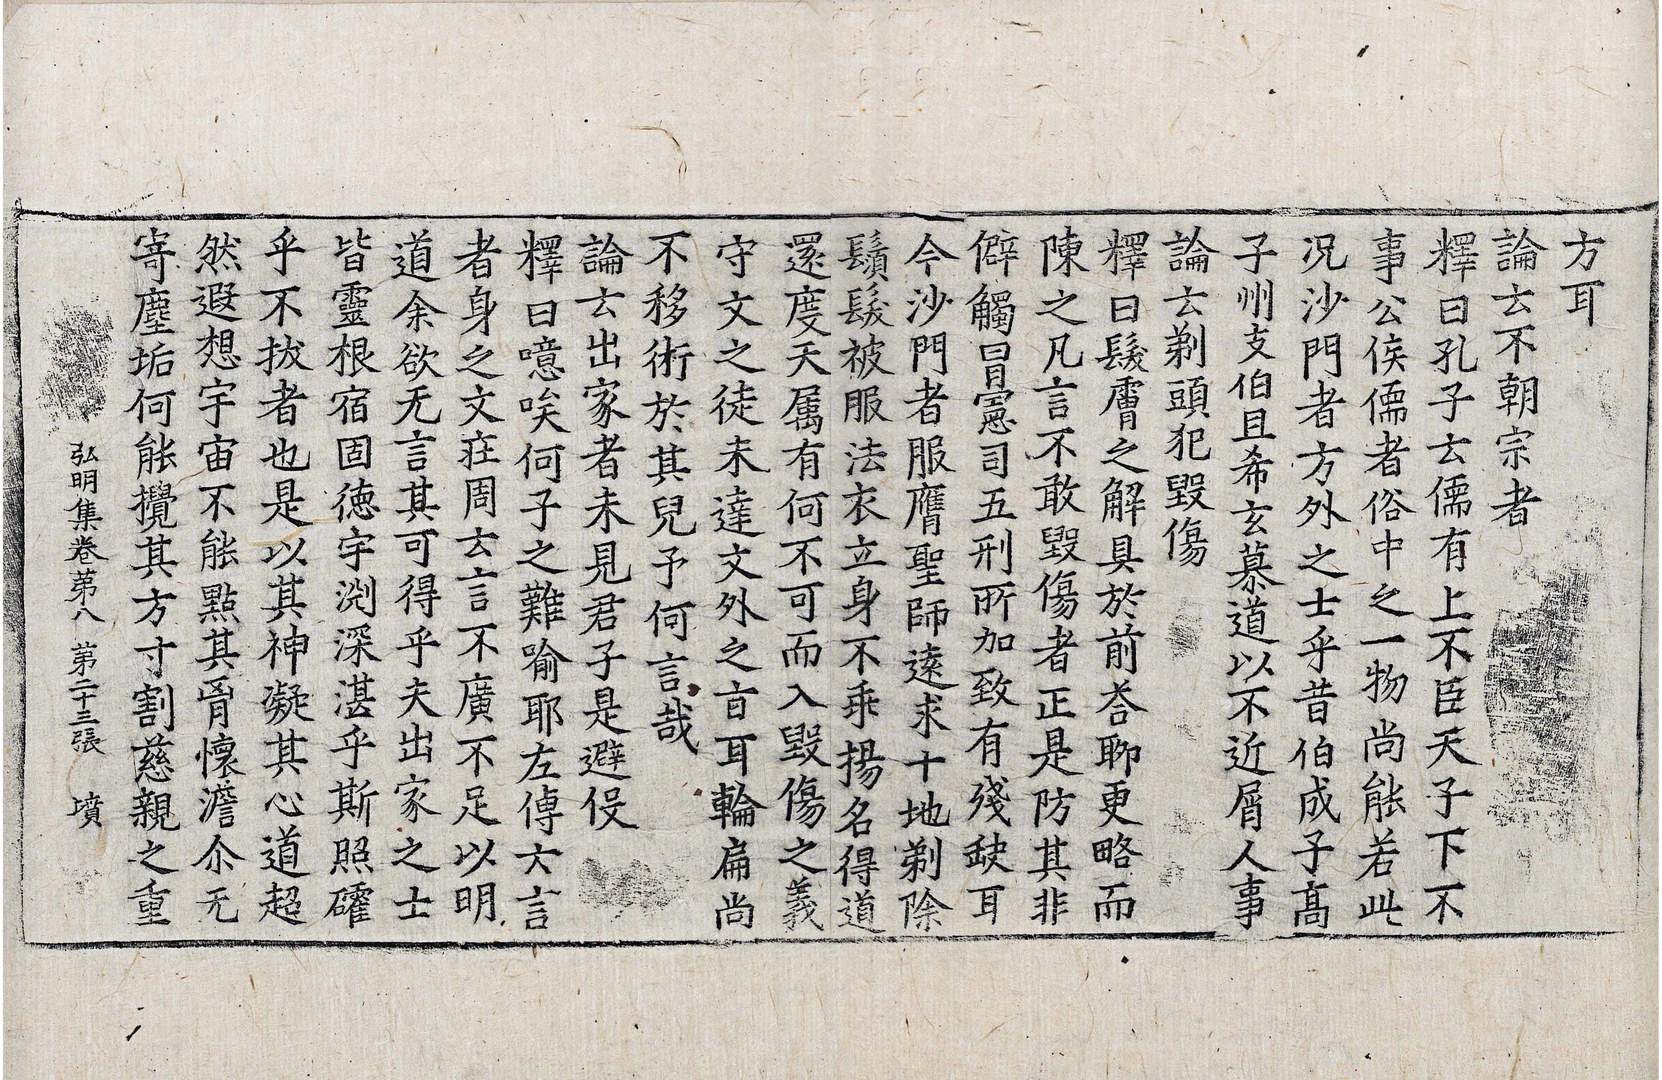 方耳
論云不朝宗者
釋曰孔子云儒有上不臣天子下不
事公侯儒者俗中之一物尚能若此
况沙門者方外之士乎昔伯成子髙
子州支伯且希玄慕道以不近屑人事
論云剃頭犯毀傷
釋曰髮膚之解具於前荅聊更略而
陳之凡言不敢毀傷者正是防其非
僻觸冒憲司五刑所加致有殘缺耳
今沙門者服膺聖師遠求十地剃除
鬚髮被服法衣立身不乖揚名得道
還度天属有何不可而入毀傷之義
守文之徒未達文外之旨耳輪扁尚
不移術於其兒予何言哉
論云出家者未見君子是避役
釋曰噫唉何子之難喻耶左傳大言
者身之文莊周云言不廣不足以明
道余欲无言其可得乎夫出家之士
皆靈根宿固德宇渕深湛乎斯照確
乎不拔者也是以其神凝其心道超
然遐想宇宙不能點其胷懷澹尒无
寄塵垢何能攪其方寸割慈親之重
弘明集卷第八 第二十三張 墳